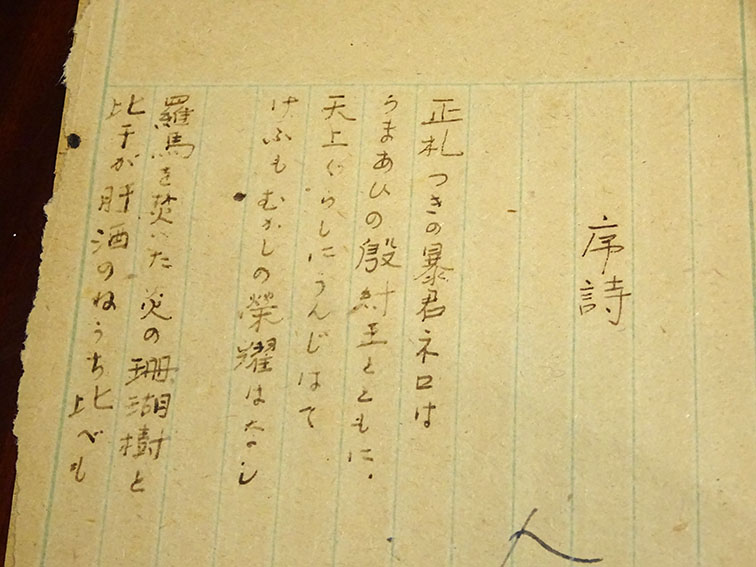 序詩
正札つきの暴君ネロは
うまあひの殷紂王とともに、
天上ぐらしにうんじはて
けふもむかしの榮耀はなし
羅馬を焚いた炎の珊瑚樹と
比干が肝酒のねうち比べも